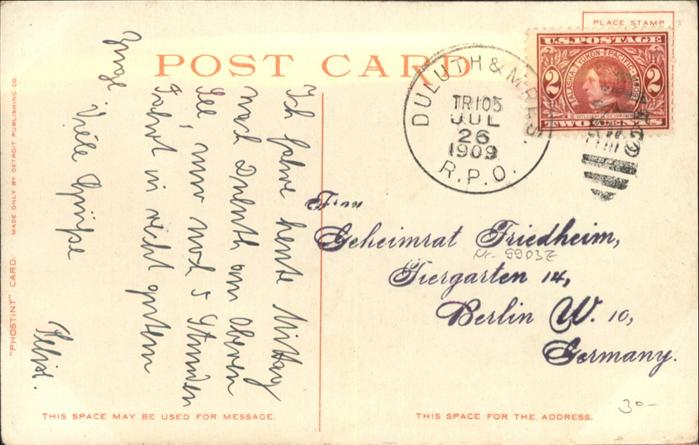 PLACE STAMP
POST CARD
U.S. POSTAGE
ALASKA YUKON PACIFIC
2 2
TWO CENTS
DULUTH & MPLS.
TR105
JUL
26
1909
R.P.O.
Ich fahre heute Mittag
nach Duluth am Oberen
See, nur noch 5 Stunden
Fahrt in recht gutem
Zuge.
Viele Grüße
Felix.
Herrn
Geheimrat Friedheim,
Nr. 9903Z
Tiergarten 14,
Berlin W. 10,
Germany.
30-
"PHOSTINT" CARD. MADE ONLY BY DETROIT PUBLISHING CO.
THIS SPACE MAY BE USED FOR MESSAGE.
THIS SPACE FOR THE ADDRESS.